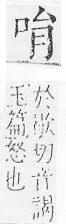 於歇切音謁
玉篇怒也